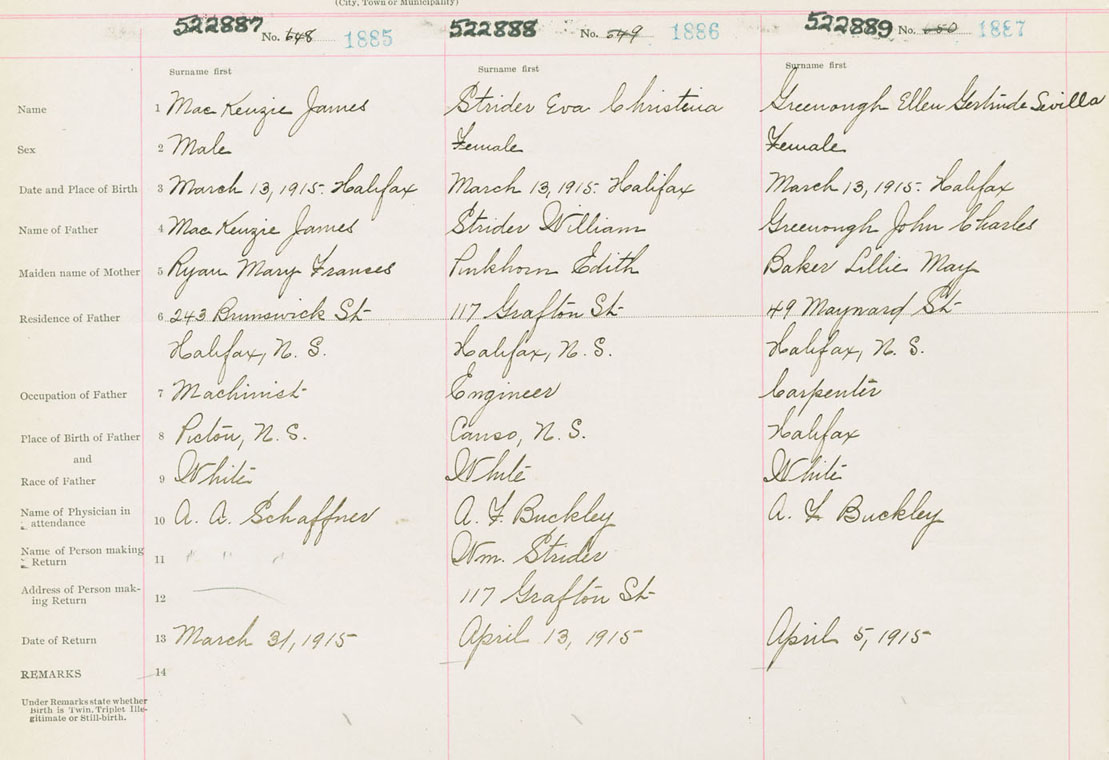 (City, Town or Municipality)
522887 No. 648 1885 522888 No. 549 1886 522889 No. 1887
Surname first Surname first Surname first
Name 1 Mac Kenzie James Strider Eva Christena Greenough Ellen Gertrude Sevilla
Sex 2 Male Female Female
Date and Place of Birth 3 March 13, 1915. Halifax March 13, 1915. Halifax March 13, 1915. Halifax
Name of Father 4 Mac Kenzie James Strider William Greenough John Charles
Maiden name of Mother 5 Ryan Mary Frances Pinkhorn Edith Baker Lillie May
Residence of Father 6 243 Brunswick St 117 Grafton St 49 Maynard St
Halifax, N. S. Halifax, N. S. Halifax, N. S.
Occupation of Father 7 Machinist Engineer Carpenter
Place of Birth of Father 8 Pictou, N. S. Canso, N. S. Halifax
and
Race of Father 9 White White White
Name of Physician in
attendance 10 A. A. Schaffner A. F. Buckley A. F. Buckley
Name of Person making
Return 11 " " " Wm. Strider
Address of Person mak-
ing Return 12 117 Grafton St
Date of Return 13 March 31, 1915 April 13, 1915 April 5, 1915
REMARKS 14
Under Remarks state whether
Birth is Twin, Triplet Ille-
gitimate or Still-birth.